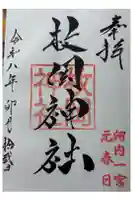 奉拝
河内一宮
元春日
枚岡神社
令和八年卯月拾弐日